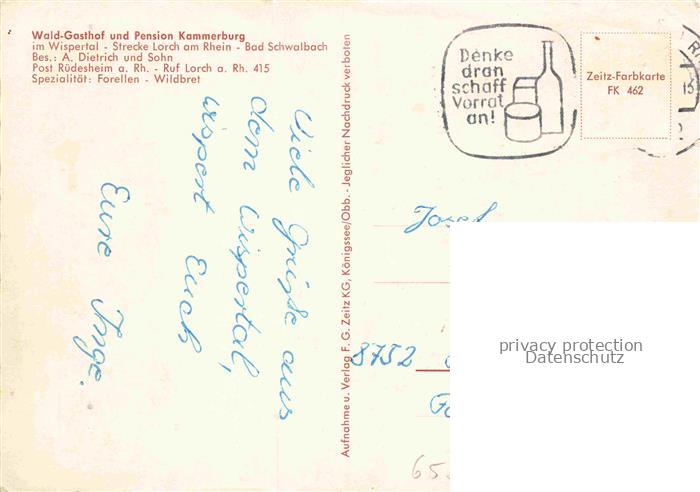 Wald-Gasthof und Pension Kammerburg
im Wispertal - Strecke Lorch am Rhein - Bad Schwalbach
Bes.: A. Dietrich und Sohn
Post Rüdesheim a. Rh. - Ruf Lorch a. Rh. 415
Spezialität: Forellen - Wildbret
Viele Grüße aus
dem Wispertal,
Euch
Eure Inge.
Aufnahme u. Verlag F. G. Zeitz KG, Königssee/Obb. - Jeglicher Nachdruck verboten
Denke
dran
schaff
Vorrat
an!
Zeitz-Farbkarte
FK 462
15
Josef
8752
privacy protection
Datenschutz
65